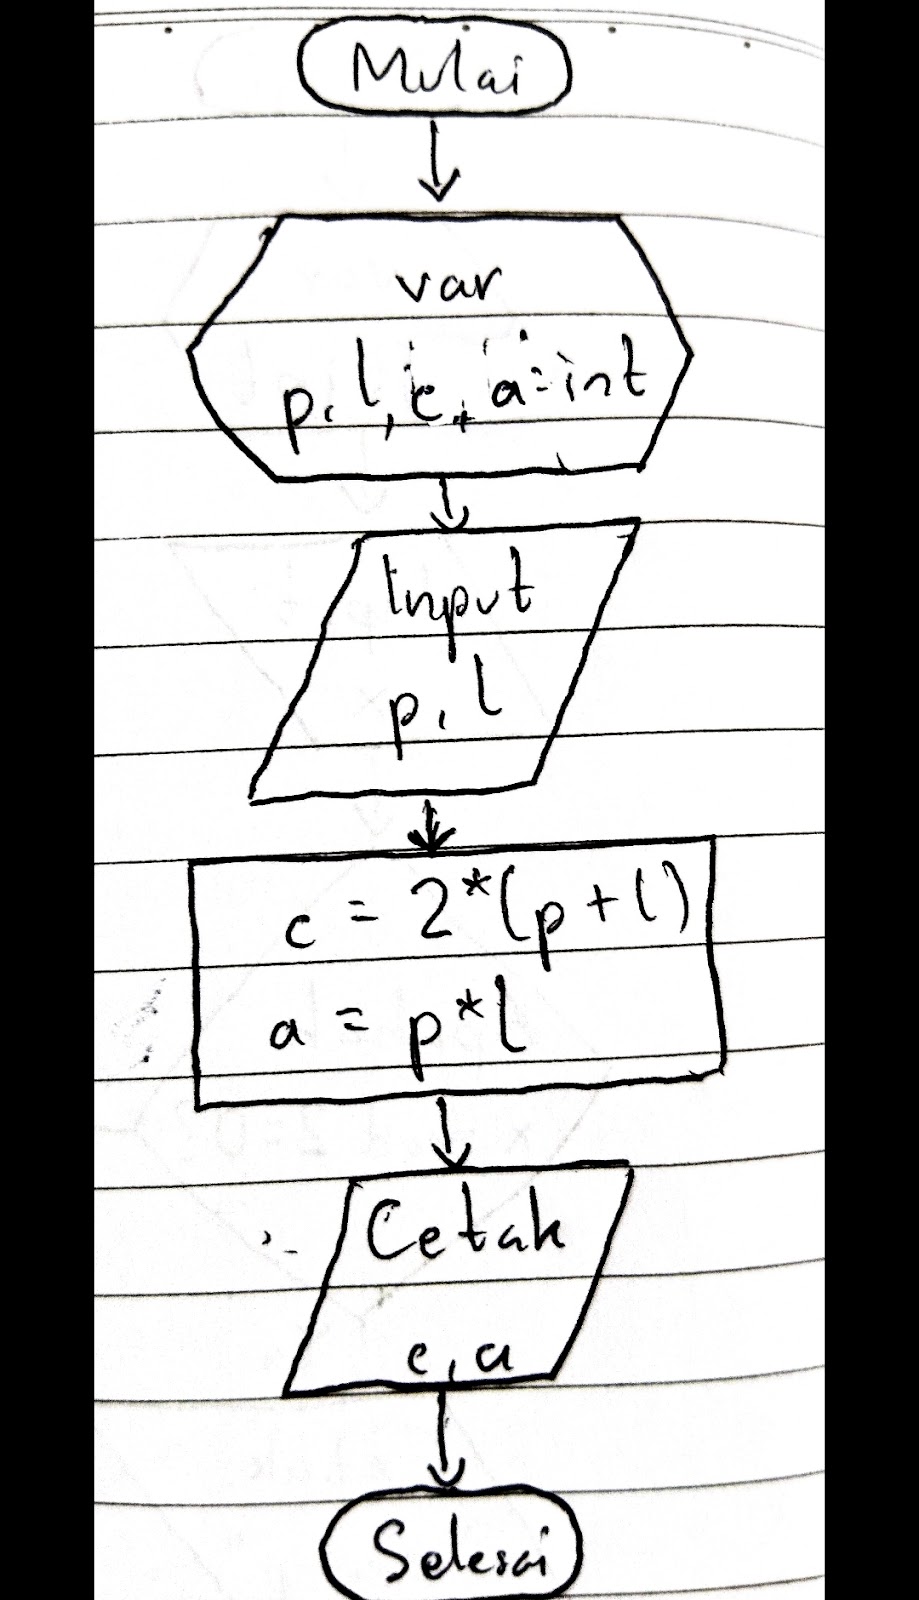 Mulai
var
p, l, c, a = int
Input
p, l
c = 2*(p+l)
a = p*l
Cetak
c, a
Selesai